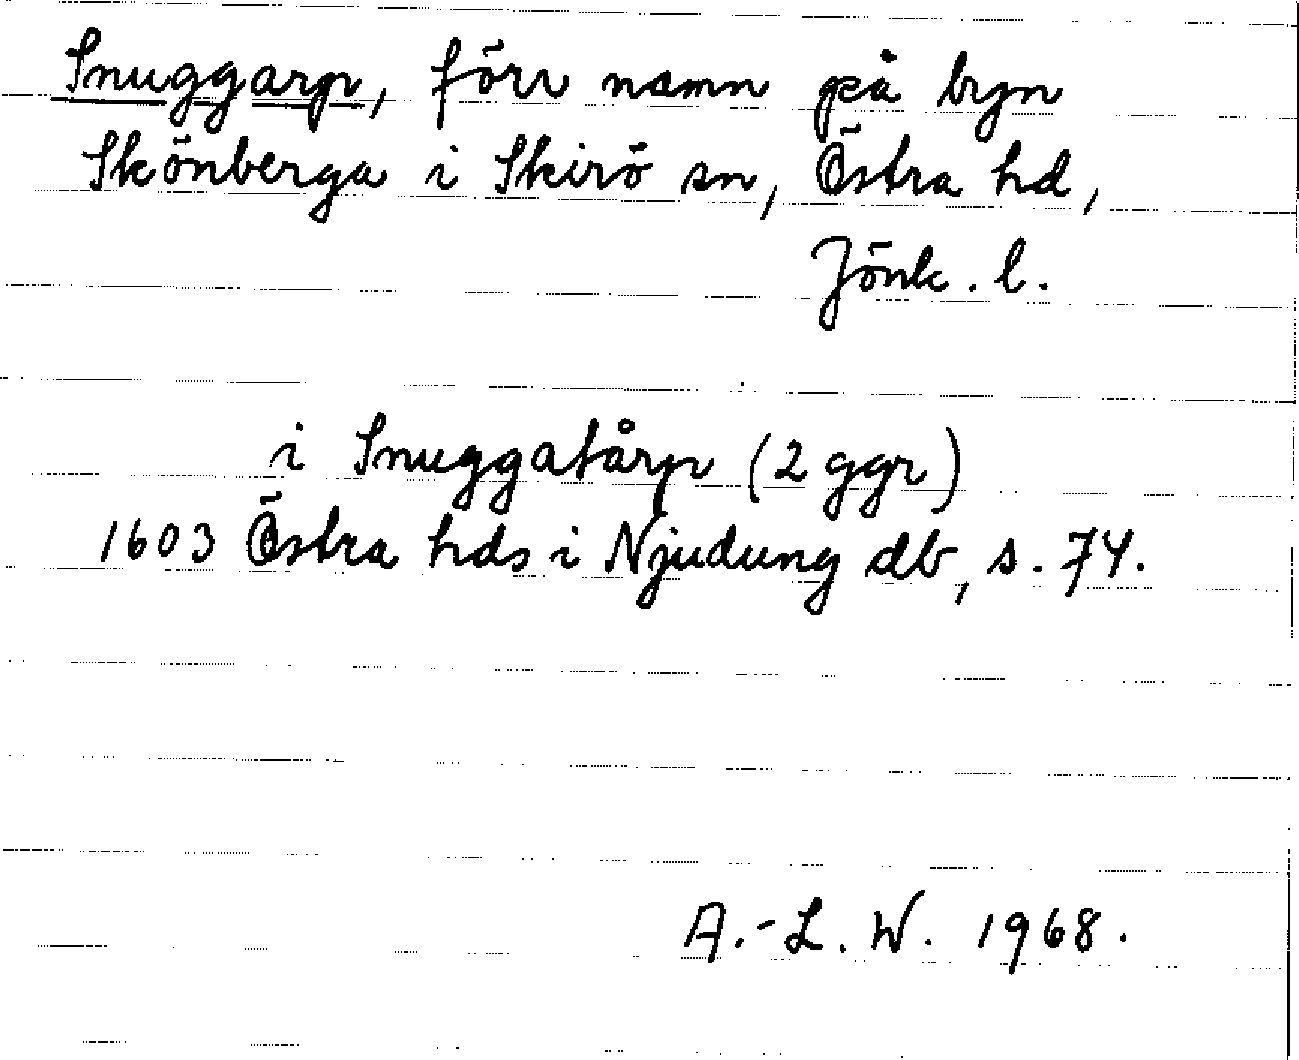 Snuggarp, förr namn på byn
Skönberga i Skirö sn, Östra hd,
Jönk. l.
i Snuggatårp (2 ggr)
1603 Östra hds i Njudung db, s. 74.
A.-L. W. 1968.